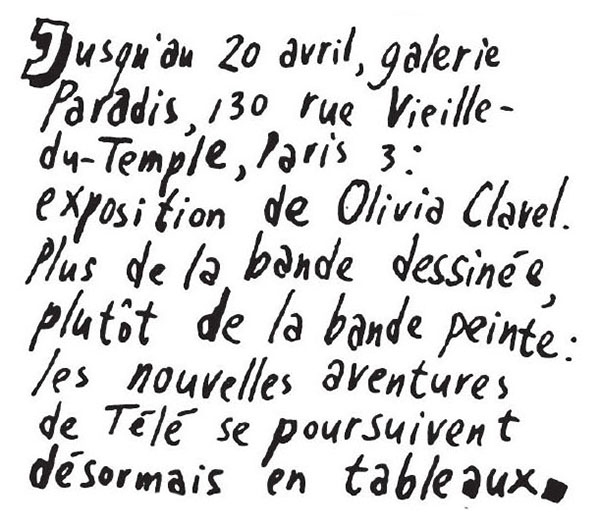 Jusqu'au 20 avril, galerie
Paradis, 130 rue Vieille-
du-Temple, Paris 3:
exposition de Olivia Clavel.
Plus de la bande dessinée,
plutôt de la bande peinte:
les nouvelles aventures
de Télé se poursuivent
désormais en tableaux.